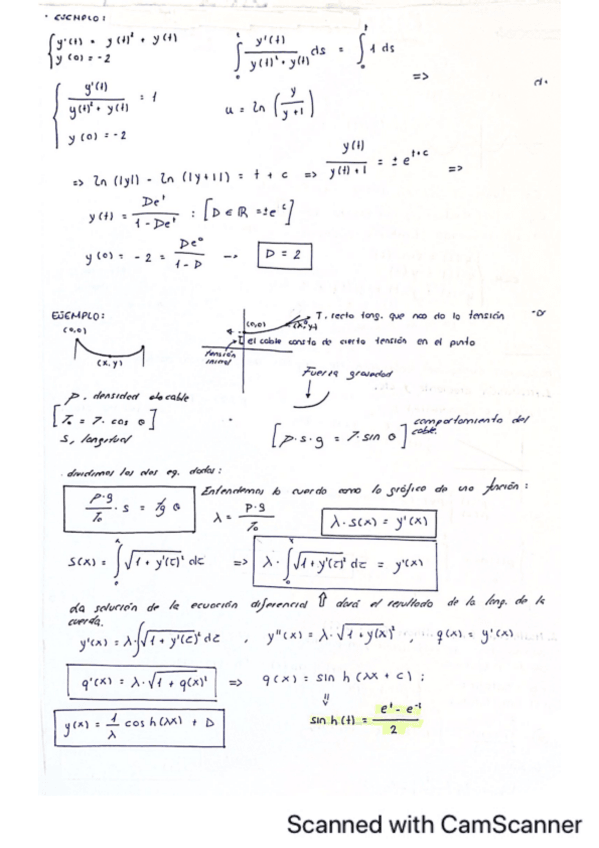 · EJEMPLO:
{ y'(t) = y(t)² + y(t)
y(0) = -2
∫₀ᵗ y'(t) / (y(t)² + y(t)) ds = ∫₀ᵗ 1 ds =>
{ y'(t) / (y(t)² + y(t)) = 1
y(0) = -2
u = ln (y / (y+1))
=> ln(|y|) - ln(|y+1|) = t + c => y(t) / (y(t)+1) = ±e^(t+c) =>
y(t) = De^t / (1 - De^t) : [D ∈ ℝ = ±e^c]
y(0) = -2 = De⁰ / (1 - D) -> D = 2
EJEMPLO:
(0,0)
(x,y)
(0,0)
(x,y)
T, recta tang. que nos da la tensión
el cable consta de cierta tensión en el punto
tensión inicial
Fuerza gravedad
ρ, densidad del cable
[T₀ = T · cos θ]
S, longitud
[ρ·s·g = T·sin θ] comportamiento del cable.
dividimos las dos eq. dadas:
ρ·g / T₀ · s = Tg θ
Entendemos la cuerda como la gráfica de una función:
λ = ρ·g / T₀
λ·s(x) = y'(x)
s(x) = ∫₀ˣ √(1 + y'(τ)²) dτ => λ·∫₀ˣ √(1 + y'(τ)²) dτ = y'(x)
La solución de la ecuación diferencial ⇑ dará el resultado de la long. de la
cuerda.
y'(x) = λ·∫√(1 + y'(τ)²) dτ , y''(x) = λ·√(1 + y(x)²) , q(x) = y'(x)
q'(x) = λ·√(1 + q(x)²) => q(x) = sin h (λx + c) ;
⇓
y(x) = 1/λ cos h(λx) + D
sin h(t) = (e^t - e^-t) / 2
Scanned with CamScanner